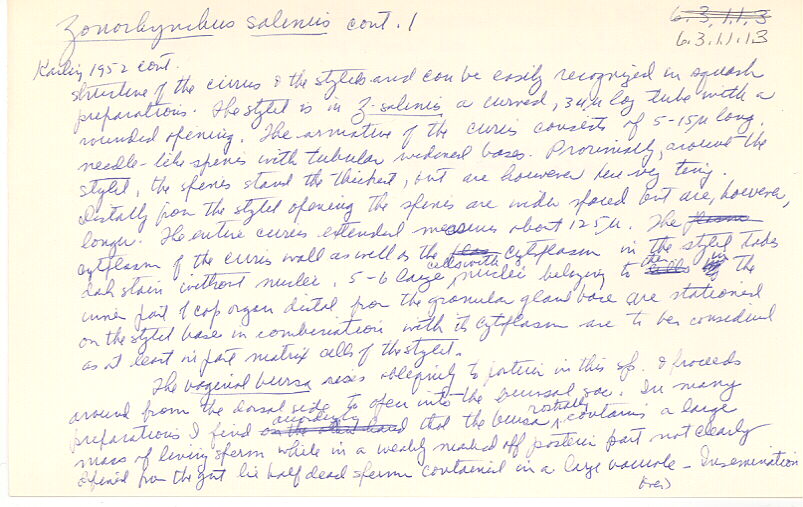 Zonorhynchus salinus cont. 1
6.3.1.1.3
6.3.1.1.13
Karling 1952 cont.
structure of the cirrus & the stylet and can be easily recognized in squash
preparations. The stylet is in Z. salinus a curved, 34µ log tube with a
rounded opening. The armature of the cirris consists of 5-15µ long,
needle-like spines with tubular widened bases. Proximally, around the
stylet, the spines stand the thickest, but are however here very tiny.
Distally from the stylet opening the spines are wider spaced but are, however,
longer. The entire cirrus extended measures about 125µ. The plasm
cytplasm of the cirris wall as well as the cytplasm in the stylet takes
dark stain without nuclei. 5-6 large cells with nuclei belonging to the
inner part of cop organ distal from the granular gland base are stationed
on the stylet base in combination with its cytplasm are to be considered
as at least in part matrix cells of the stylet.
The vaginal bursa rises obliquely to posterior in this sp. & proceeds
around from the dorsal side to open into the bursal sac. In many
preparations I find accordingly on the other hand that the bursa rostrally contains a large
mass of living sperm while in a weakly marked off posterior part not clearly
defined from the gut lie half dead sperm contained in a large vacuole - Insemination
(over)